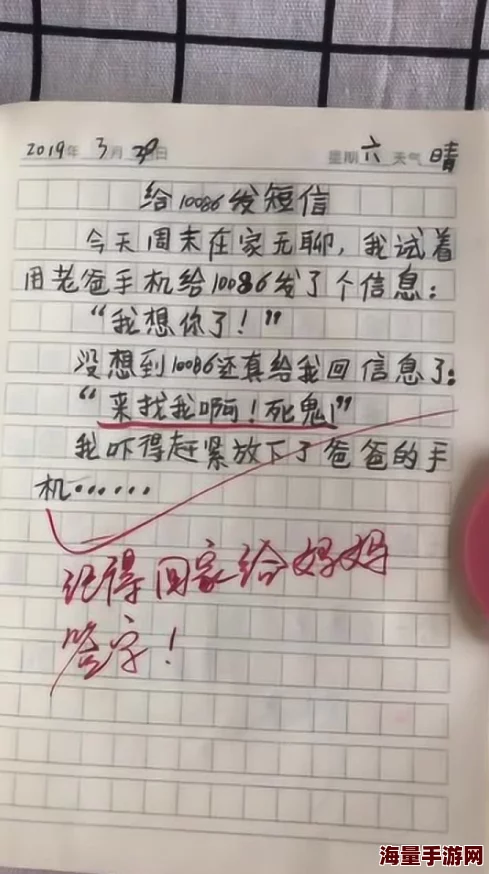 2019年 3月 30日 星期 六 天气 晴
给10086发短信
今天周末在家无聊，我试着
用老爸手机给10086发了个信息：
“我想你了！”
没想到10086还真给我回信息了：
“来找我啊！死鬼！”
我吓得赶紧放下了爸爸的手
机……
记得回家给妈妈
签字！
海量手游网